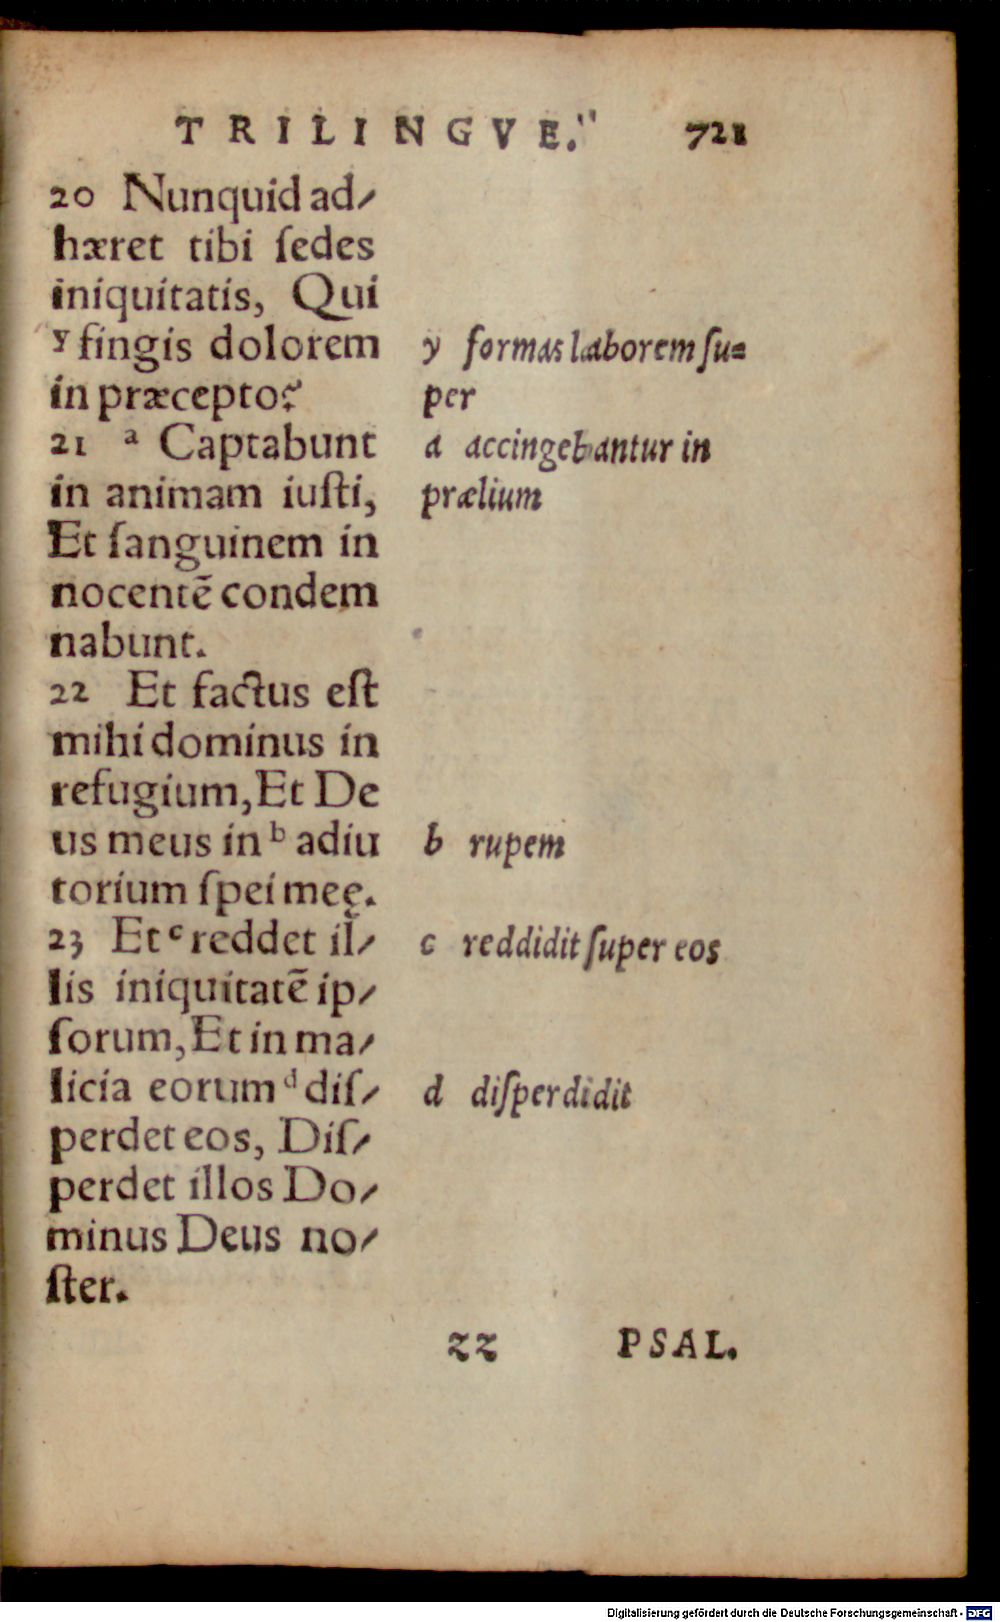 TRILINGVE. 721
20 Nunquid ad-
hæret tibi ſedes
iniquitatis, Qui
y fingis dolorem
in præcepto?
21 a Captabunt
in animam iuſti,
Et ſanguinem in
nocentē condem
nabunt.
22 Et factus eſt
mihi dominus in
refugium, Et De
us meus in b adiu
torium ſpei meę.
23 Et c reddet il-
lis iniquitatē ip-
ſorum, Et in ma-
licia eorum d diſ-
perdet eos, Diſ-
perdet illos Do-
minus Deus no-
ſter.
y formas laborem ſu-
per
a accingebantur in
prælium
b rupem
c reddidit ſuper eos
d diſperdidit
zz PSAL.
Digitalisierung gefördert durch die Deutsche Forschungsgemeinschaft - DFG